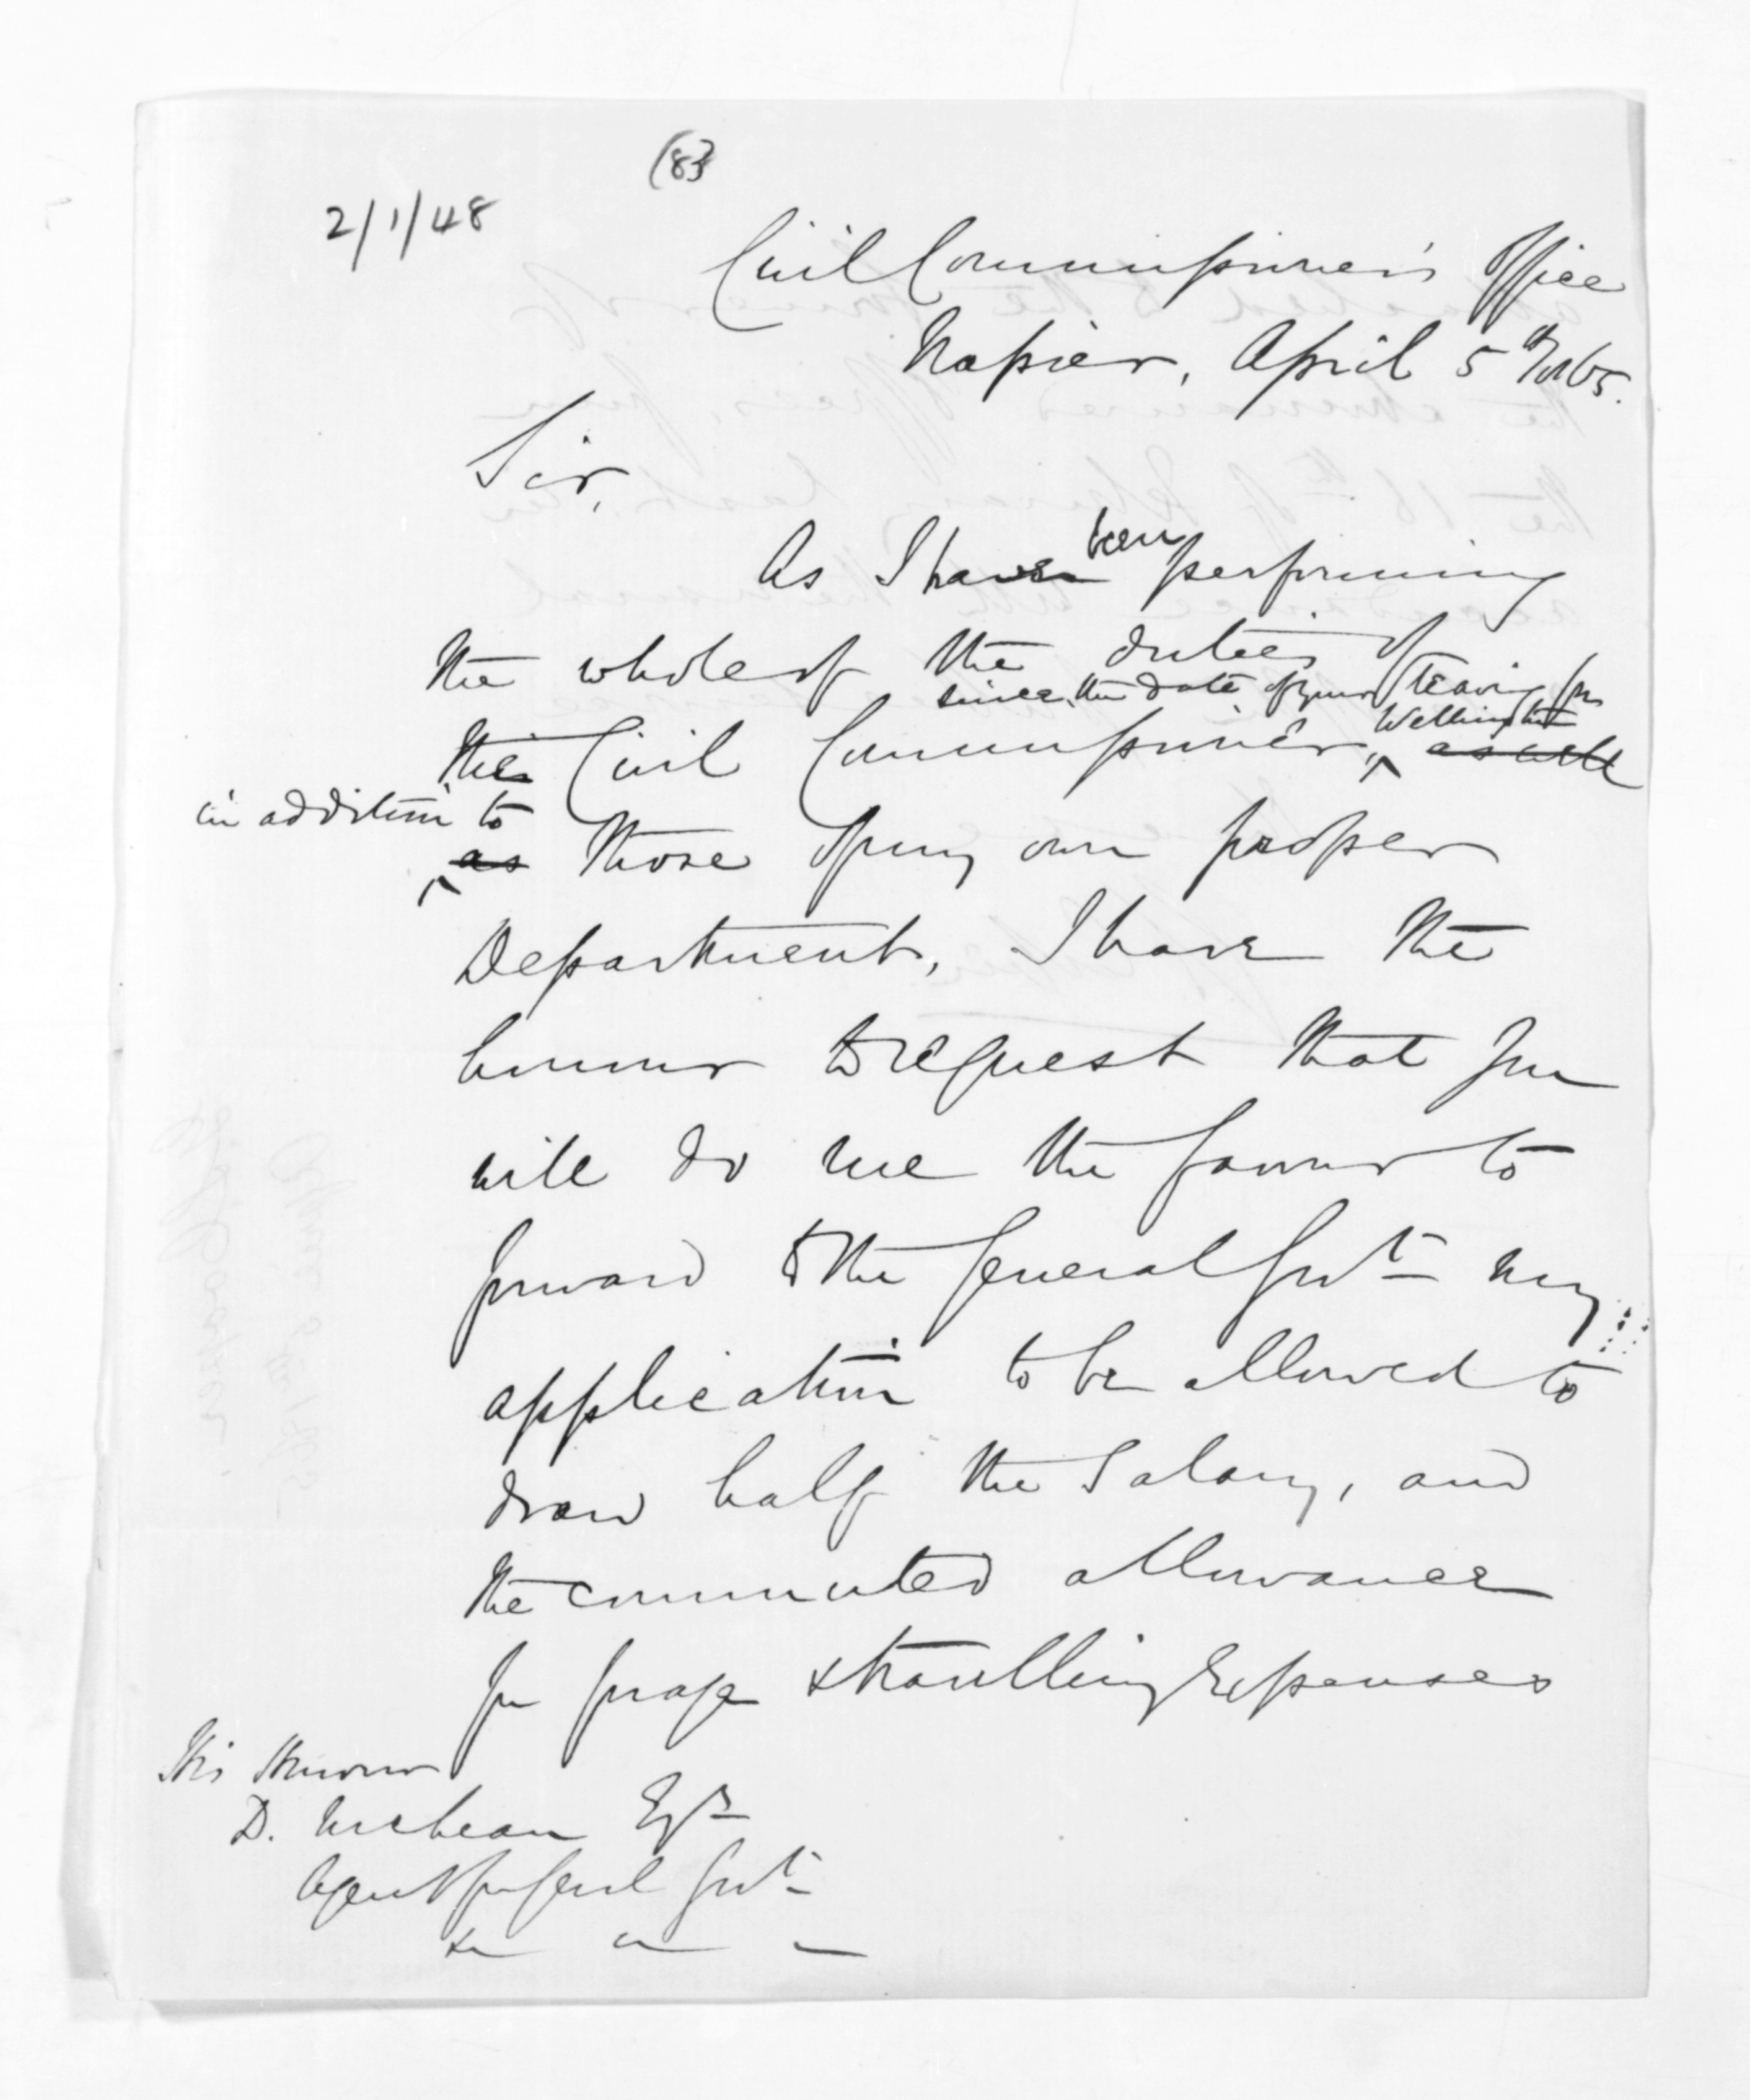 (83
2/1/48
Civil Commissioner's Office
Napier, April 5th/65.
Sir,
As I have been performing
the whole of the duties of
since the date of your leaving for
Wellington
the Civil Commissioner, as well
in addition to
as those of my own proper
Department, I have the
honour to request that you
will do me the favour to
forward to the General Govt my
application to be allowed to
draw half the Salary, and
the commuted allowance
for forage & travelling Expenses
His Honour
D. McLean Esqre
Agent for Genl Govt